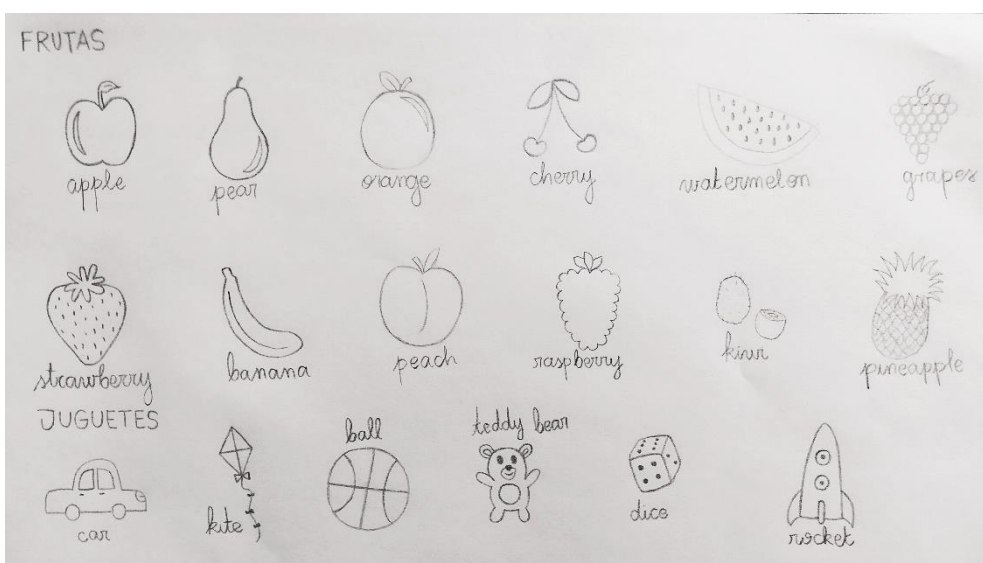 FRUTAS
apple pear orange cherry watermelon grapes
strawberry banana peach raspberry kiwi pineapple
JUGUETES
ball teddy bear
car kite dice rocket